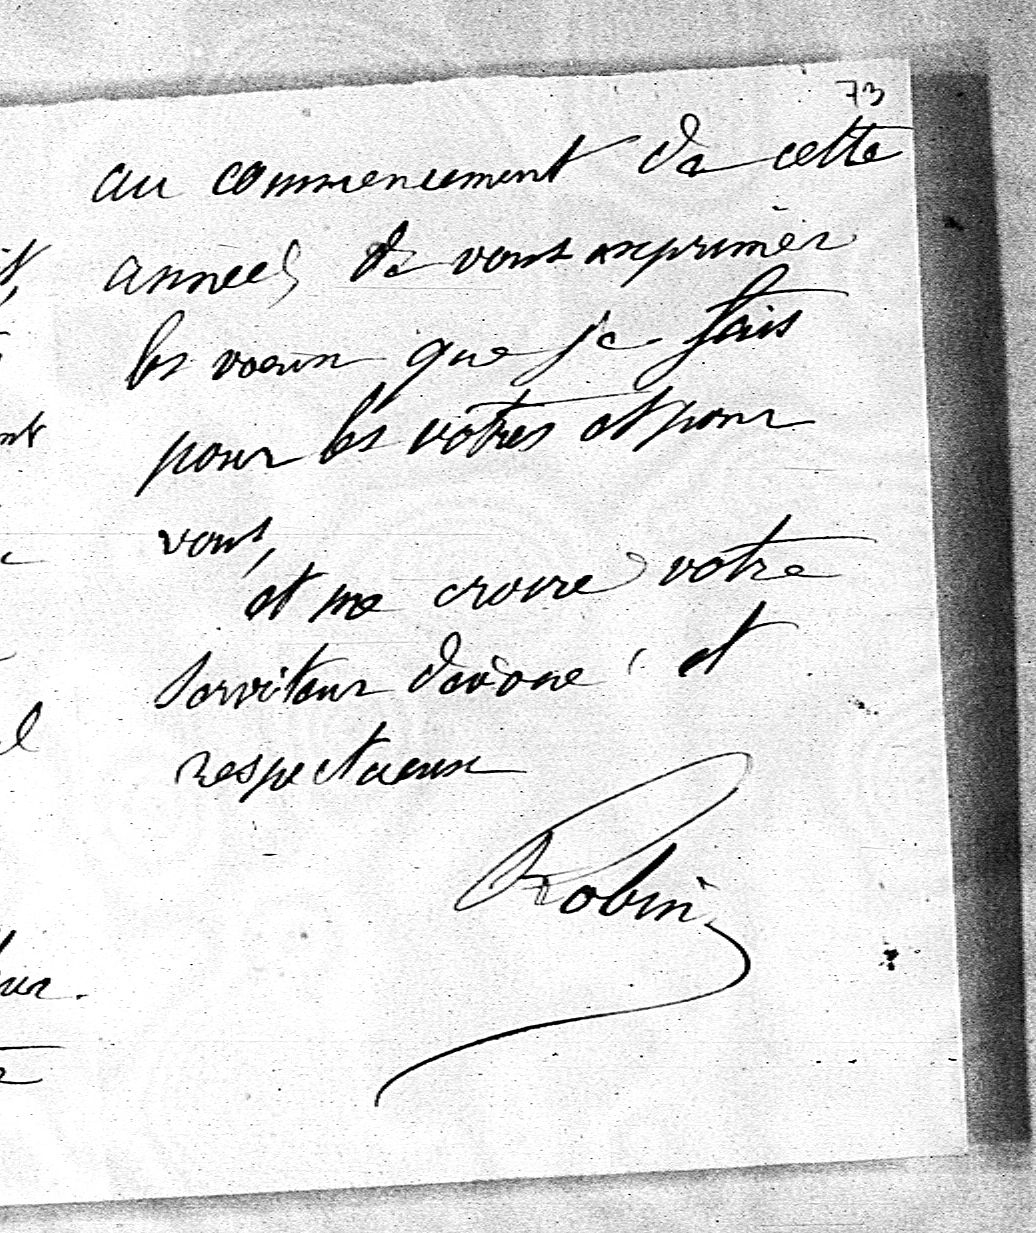 73
au commencement de cette
année, de vous exprimer
les voeux que je fais
pour les vôtres et pour
vous,
et me croire votre
serviteur dévoué et
respectueux
Robin